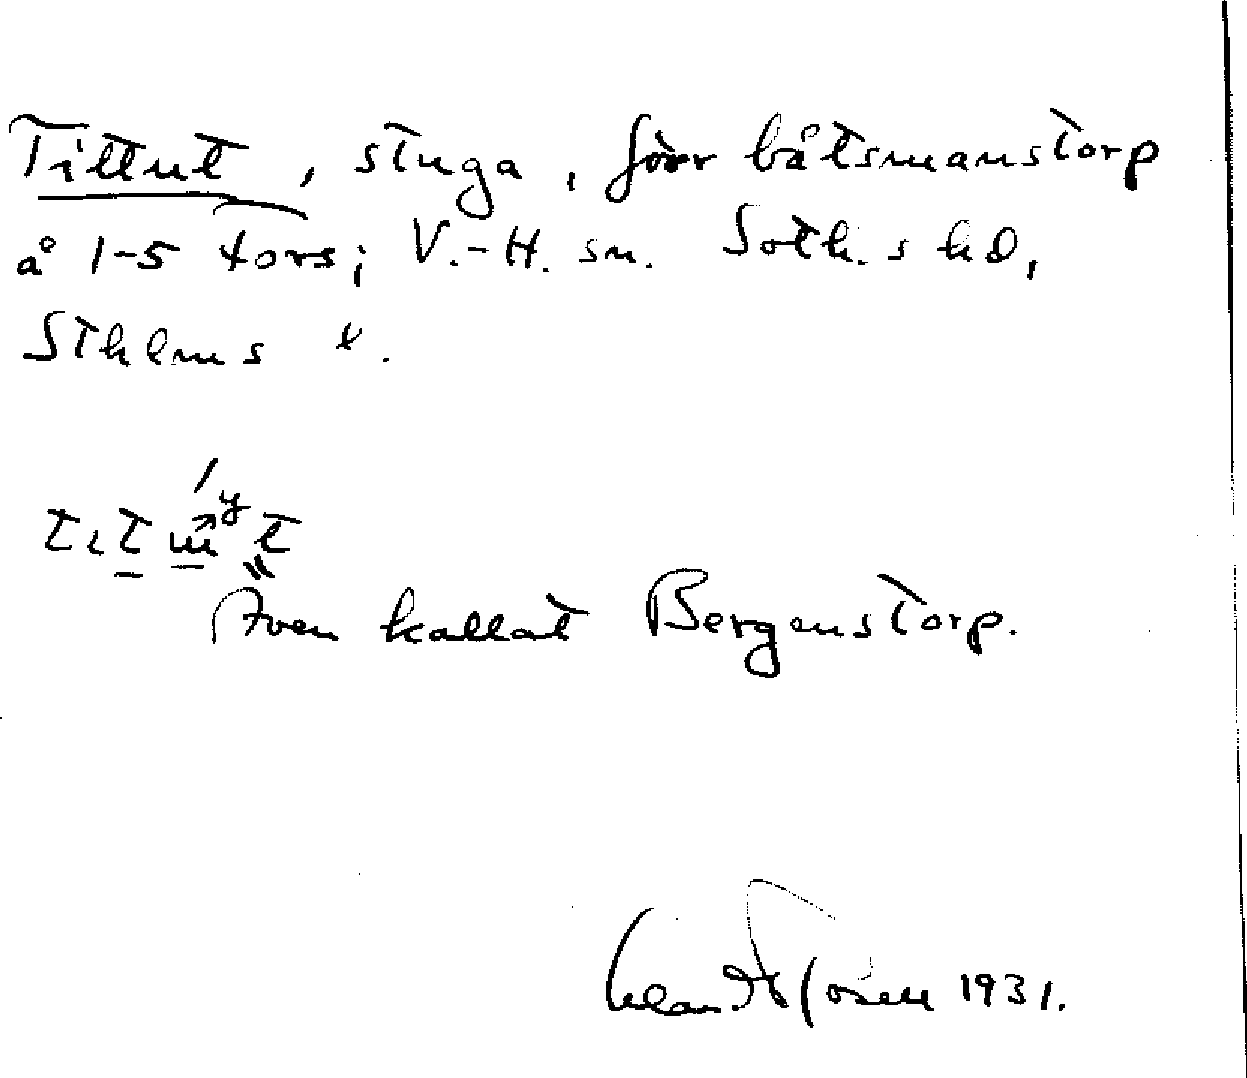 Tittut, stuga, förr båtsmanstorp
å 1-5 Fors; V.-H. sn. Soth. s hd,
Sthlms l.
Även kallat Bergenstorp.
1931.